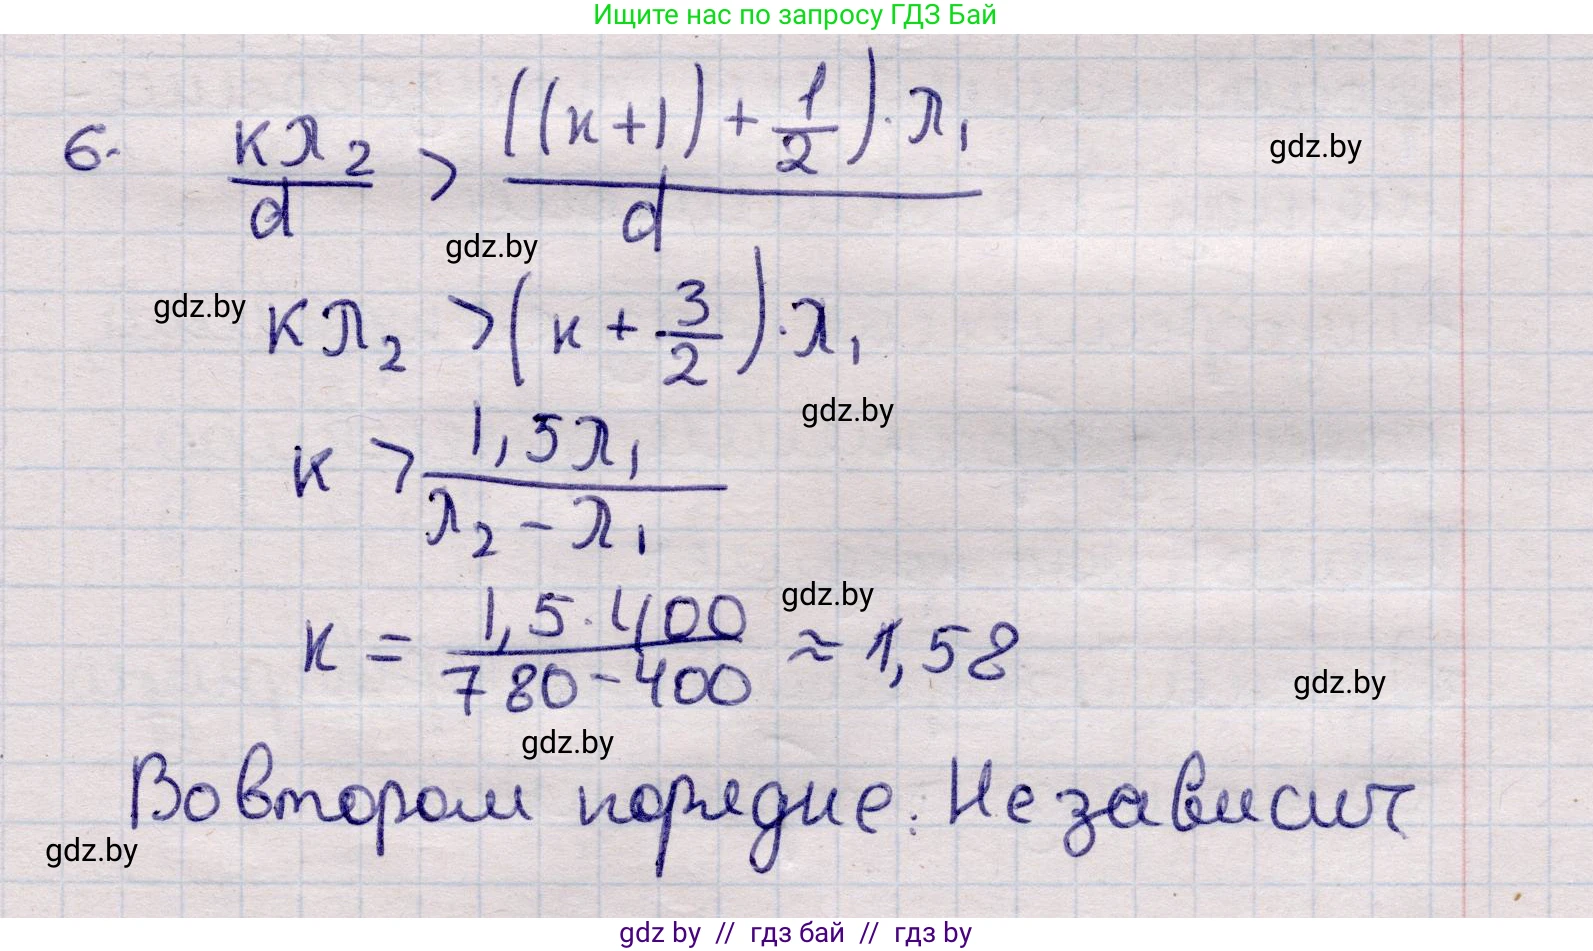 Ищите нас по запросу ГДЗ Бай
6. кλ₂/d > ((к+1)+1/2)·λ₁/d
gdz.by
gdz.by
gdz.by
кλ₂ > (к+3/2)·λ₁
gdz.by
к > 1,5λ₁/λ₂-λ₁
gdz.by
к = 1,5·400/780-400 ≈ 1,58
gdz.by
gdz.by
Во втором порядке. Не зависит
gdz.by
gdz by // гдз бай // гдз by